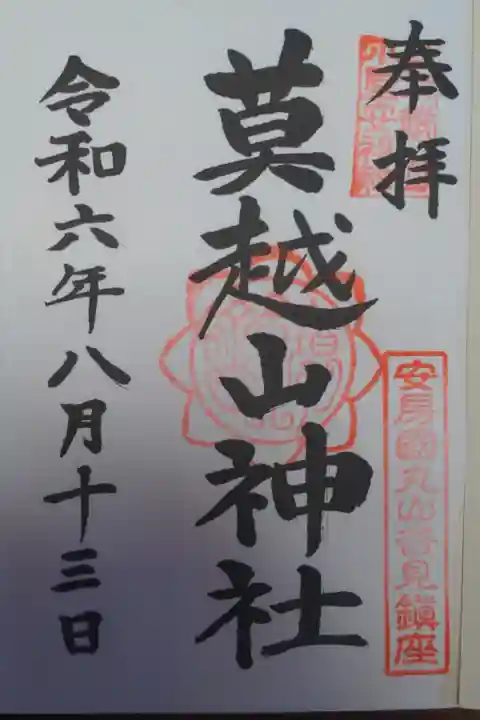 奉拝
安房國丸山沓見鎮座
莫越山神社
令和六年八月十三日